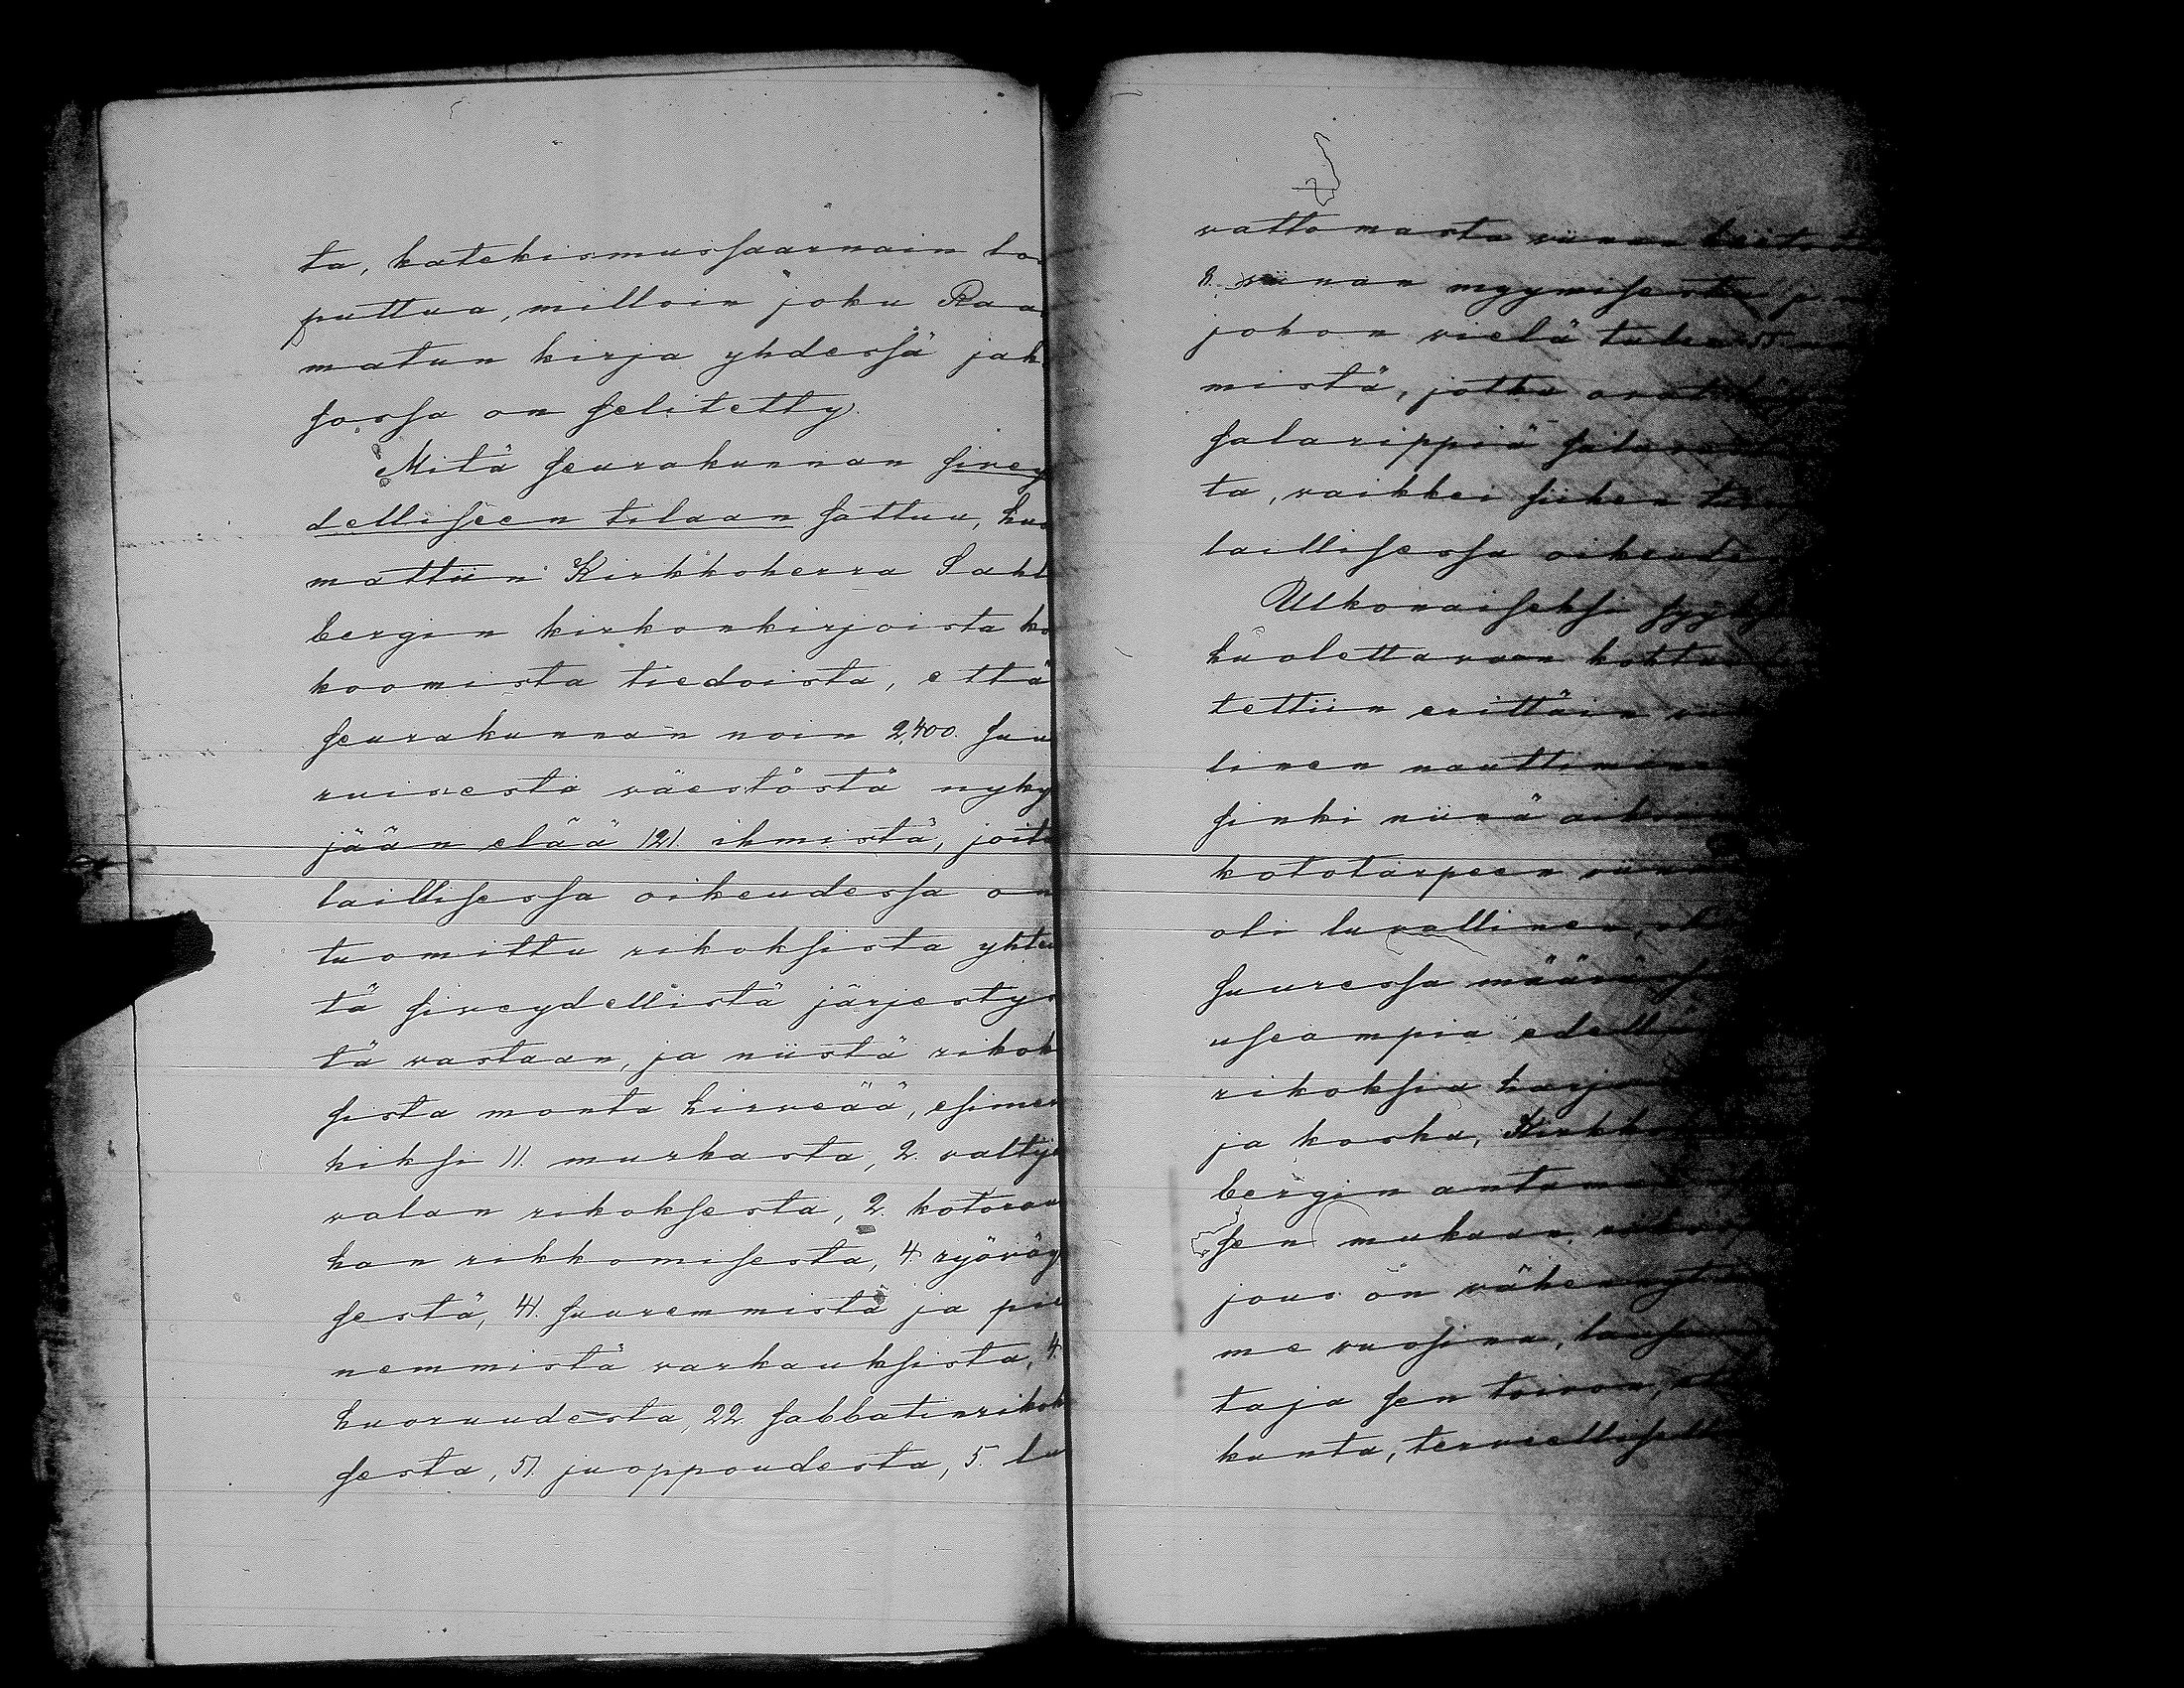 ta, katekismussaarnain lo
puttua, milloin joku Raa
matun kirja yhdessä jak
sossa on selitetty.
Mitä seurakunnan sivey
delliseen tilaan sattuu, huo
mattiin Kirkkoherra Sahl
bergin kirkonkirjoista ko
koomista tiedoista, että
seurakunnan noin 2,400. suu
ruisesta väestöstä nyky
jään elää 121. ihmistä, joita
laillisessa oikeudessa on
tuomittu rikoksista yhteis
tä siveydellistä järjestys
tä vastaan, ja niistä rikok
sista monta hirveää, esimer
kiksi 11. murhasta, 2. valtije
valan rikoksesta, 2. kotorau
han rikkomisesta, 4. ryöväy
sestä, 41. suuremmista ja pie
nemmistä varkauksista, 4.
huoruudesta, 22. sabbatinrikok
sesta, 51. juoppoudesta, 5. lu
vattomasta viinan
8. viinan myymisestä
johon vielä tulee 55
mistä, jotka ovat
salarippiä
ta, vaikkei siihen
laillisessa oikeude
Ulkonaiseksi syyksi
huolettavaan kohtaan
tettiin erittäin
linen nauttiminen
sinki niinä aikoina
kototarpeen viinan
oli luvallinen,
suuressa määrässä
useampia edellä
rikoksia harjoi
ja koska, Kirkko
bergin antaman
sen mukaan,
jous on vähennyt
me vuosina, lausu
taja sen toivon,
kunta, terveellisell